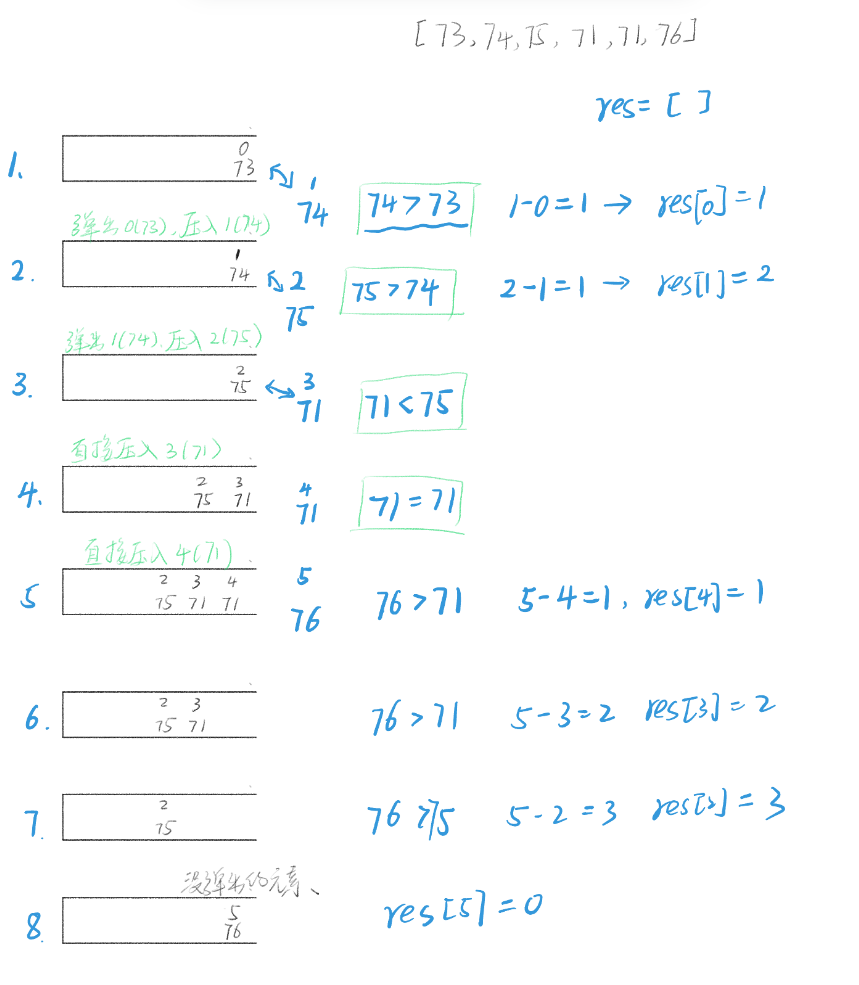 [73, 74, 75, 71, 71, 76]
res= [ ]
1.
0
73
1
74
74>73
1-0=1 → res[0]=1
弹出0(73), 压入1(74)
2.
1
74
2
75
75>74
2-1=1 → res[1]=2
弹出1(74). 压入2(75)
3.
2
75
3
71
71<75
直接压入3(71)
4.
2 3
75 71
4
71
71=71
直接压入4(71)
5
2 3 4
75 71 71
5
76
76>71
5-4=1, res[4]=1
6.
2 3
75 71
76>71
5-3=2 res[3]=2
7.
2
75
76>75
5-2=3 res[2]=3
没弹出的元素、
8.
5
76
res[5]=0